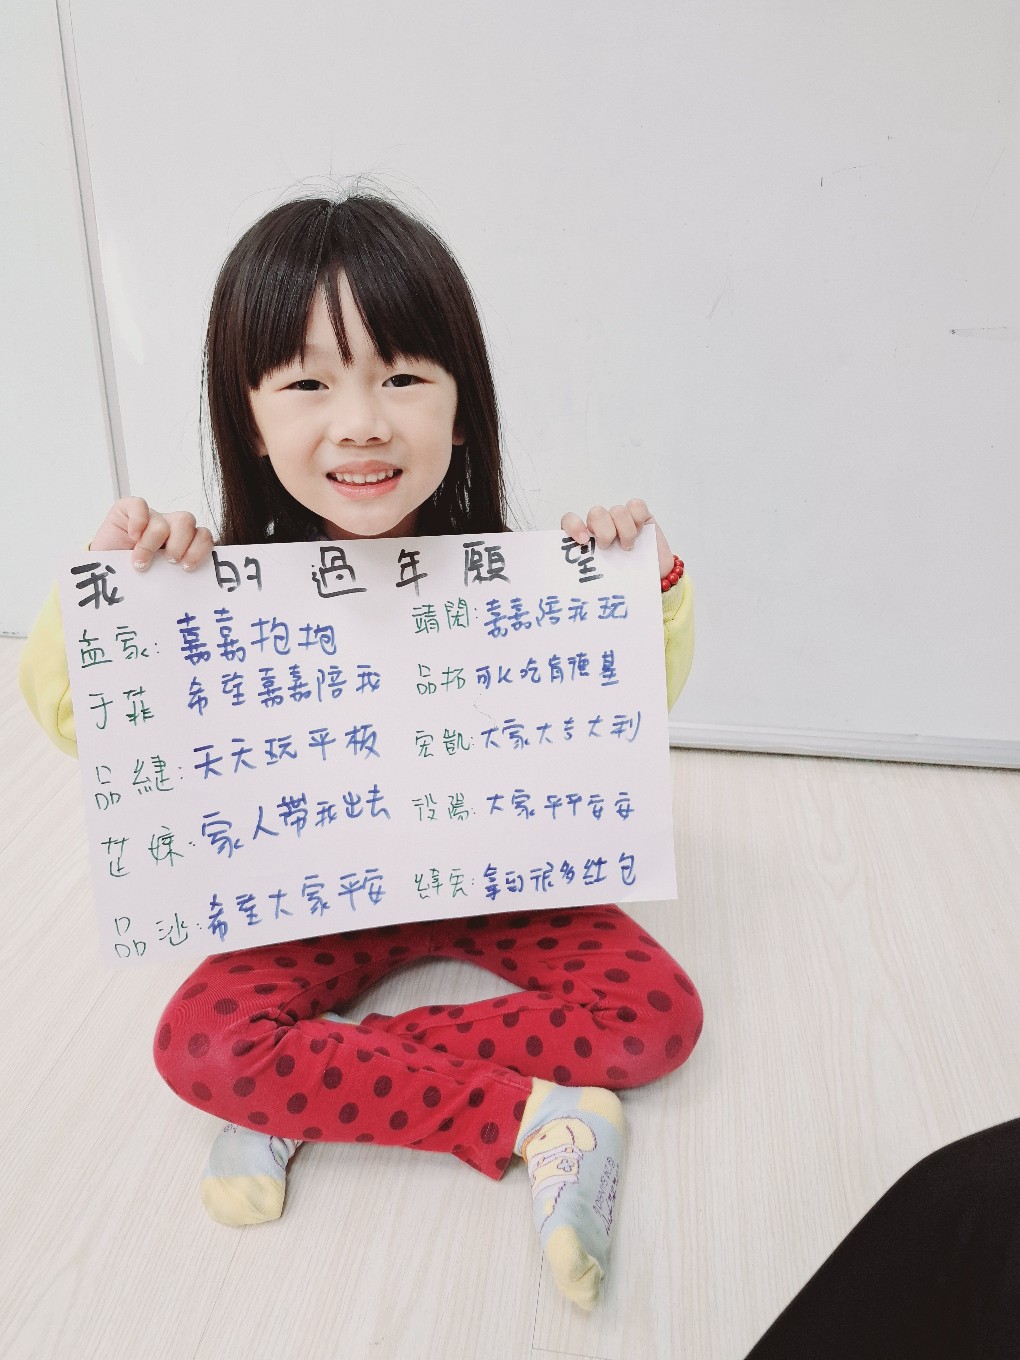 我的過年願望
孟家: 嘉嘉抱抱
于菲 希望嘉嘉陪我
品緁: 天天玩平板
芷嫀: 家人帶我出去
品沙: 希望大家平安
靖閎: 嘉嘉陪我玩
品拓 可以吃肯德基
宏凱: 大家大吉大利
役陽: 大家平平安安
緯宏: 拿到很多紅包